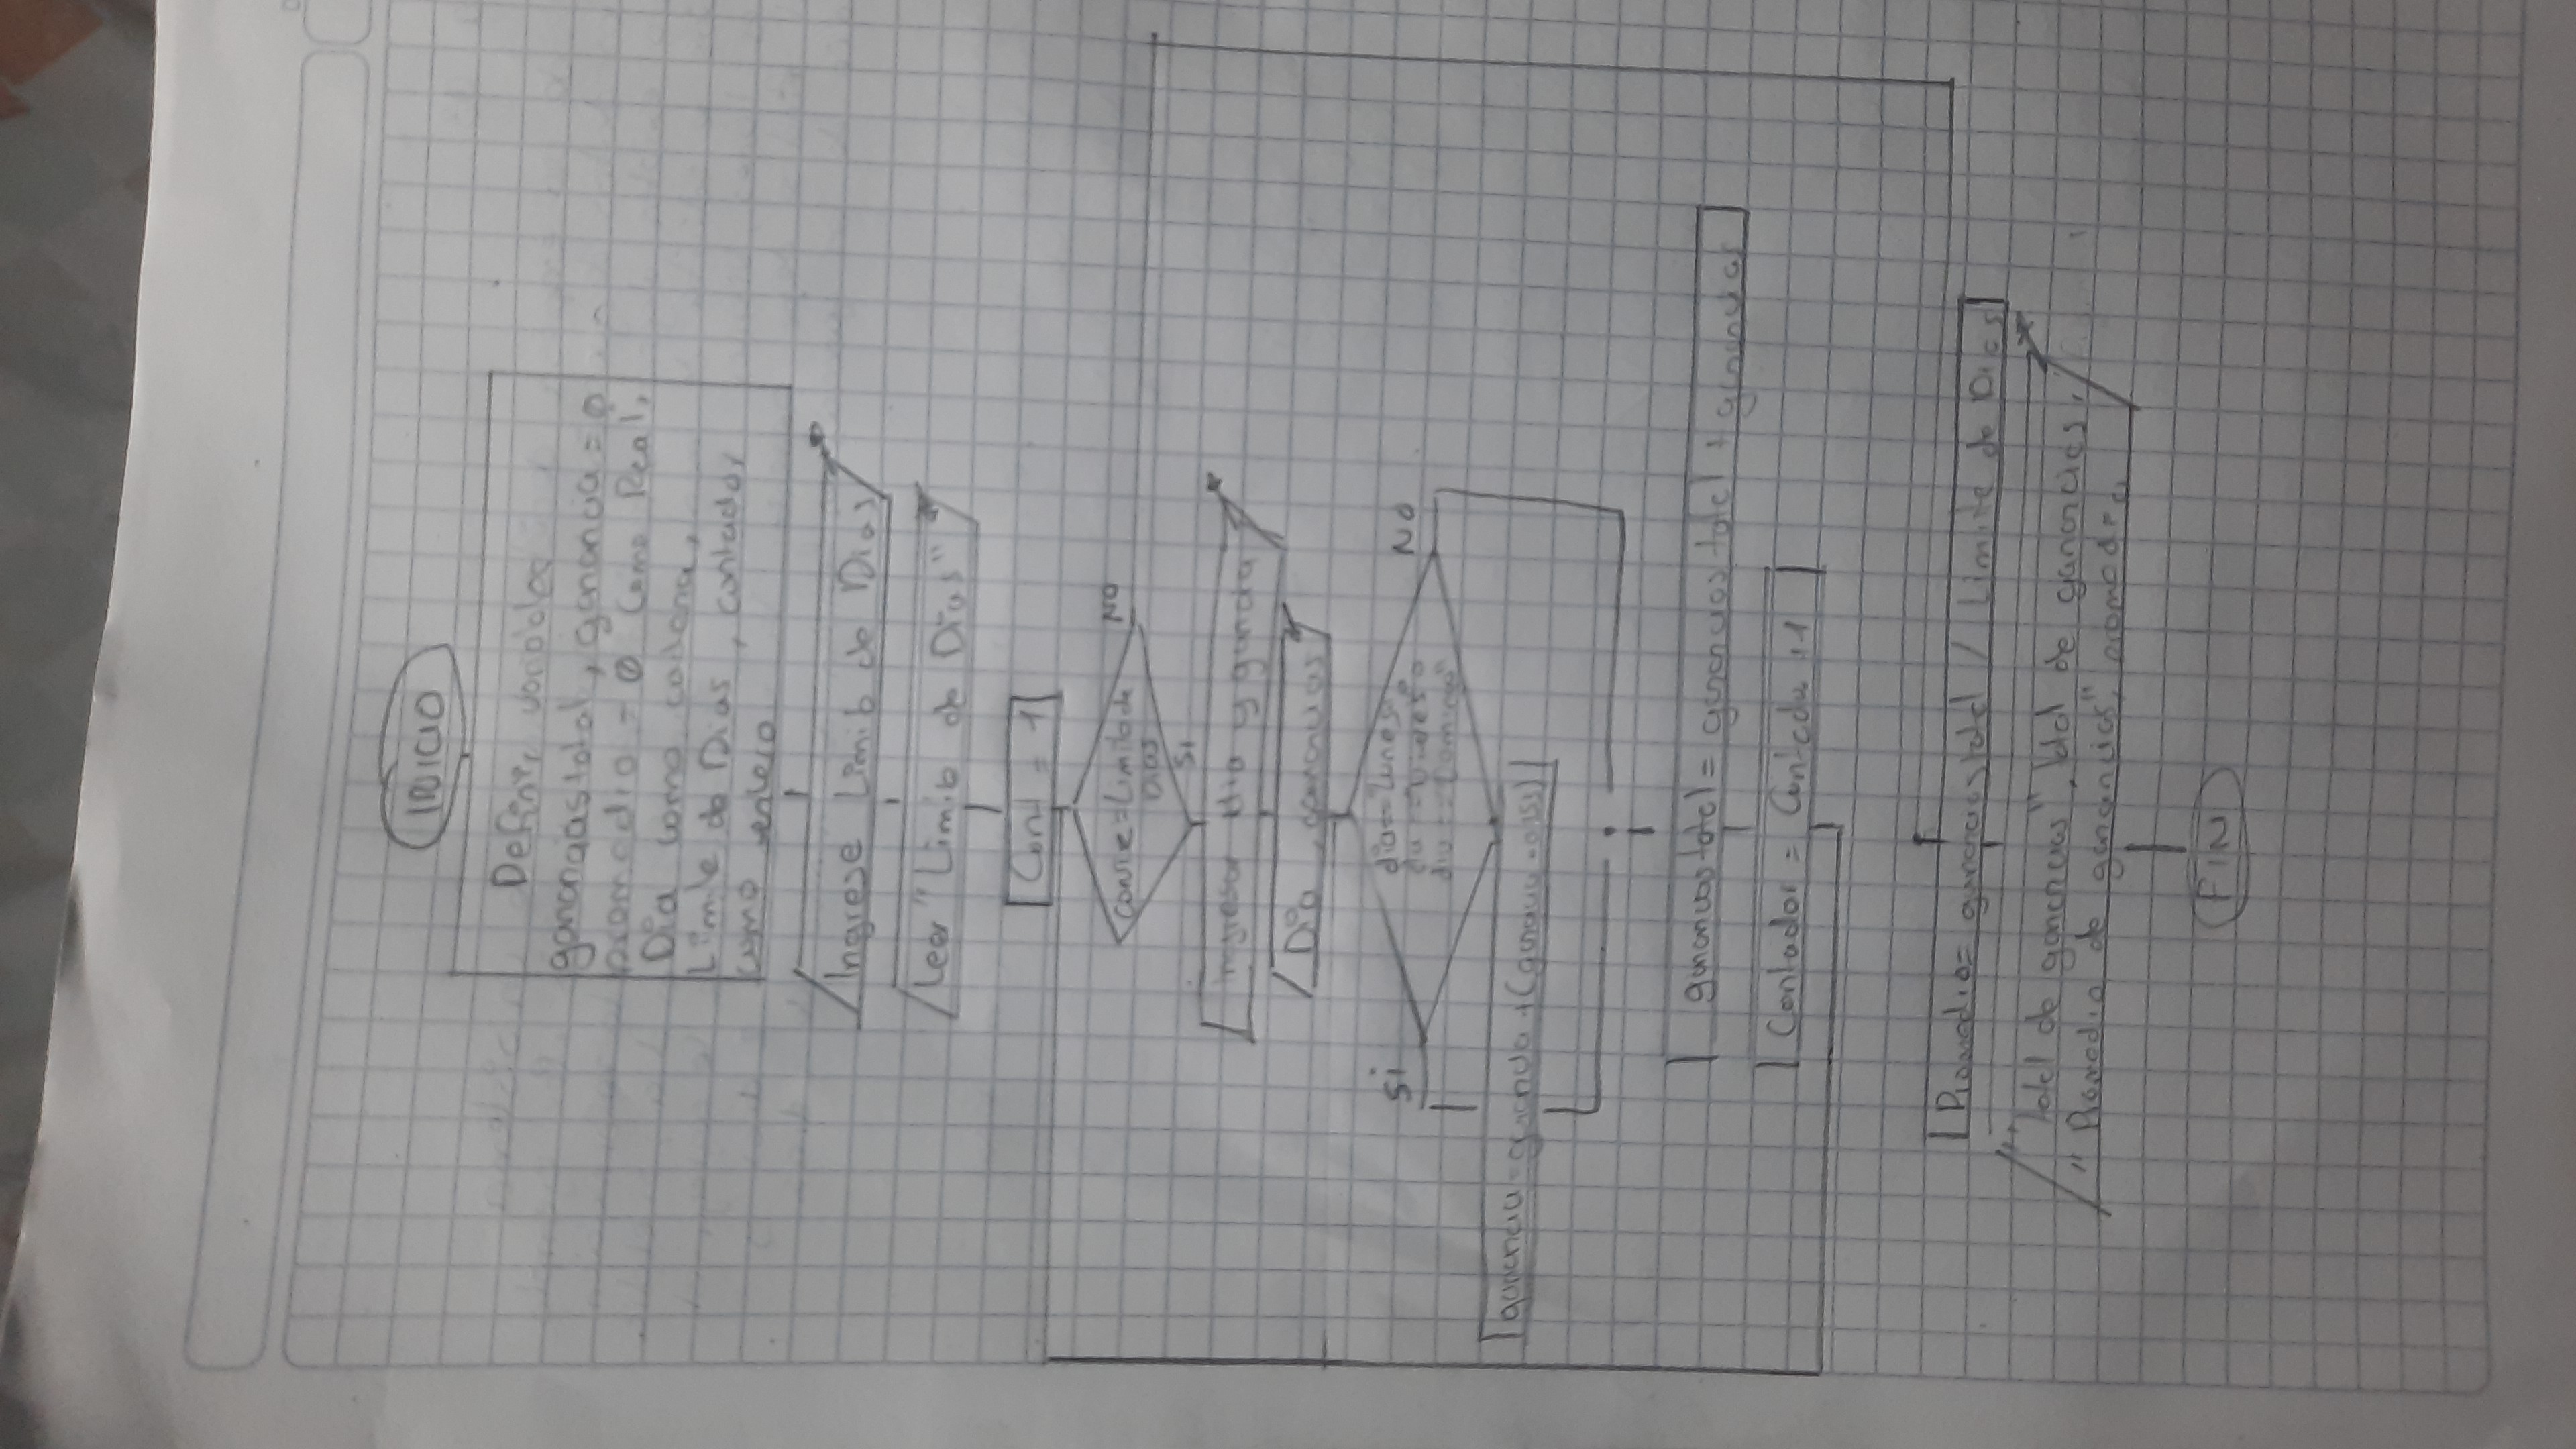 INICIO
Definir variables
gananciastotal, ganancia = 0
promedio = 0 como Real,
Dia como cadena,
Limite de Dias, contador
como entero
Ingrese Limite de Dias
Leer "Limite de Dias"
Cont = 1
= Limite de
Dias
NO
Si
ingresar dia y
Dia, ganancias
Si
NO
dia == "Lunes"
dia == o
dia == "Domingo"
gananciastotal = gananciastotal + ganancias
Contador = Contador + 1
Promedio = gananciastotal / Limite de Dias
"Total de ganancias", total de ganancias,
"Promedio de ganancias", promedio
FIN